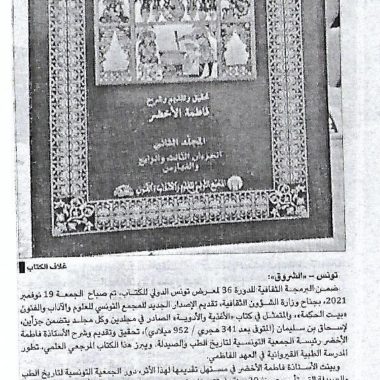 تحقيق وتقديم وشرح
فاطمة الأخضر
المجلد الثاني
الجزءان الثالث والرابع
والفهارس
غلاف الكتاب
تونس ـ «الشروق»:
ضمن البرمجة الثقافية للدورة 36 لمعرض تونس الدولي للكتاب، تم صباح الجمعة 19 نوفمبر
2021، بجناح وزارة الشؤون الثقافية، تقديم الإصدار الجديد للمجمع التونسي للعلوم والآداب والفنون
«بيت الحكمة»، والمتمثل في كتاب «الأغذية والأدوية» الصادر في مجلدين وكل مجلد يتضمن جزأين،
لإسحاق بن سليمان (المتوفى بعد 341 هجري / 952 ميلادي)، تحقيق وتقديم وشرح الأستاذة فاطمة
الأخضر رئيسة الجمعية التونسية لتاريخ الطب والصيدلة. ويبرز هذا الكتاب المرجعي العلمي، تطور
المدرسة الطبية القيروانية في العهد الفاطمي.
وبينت الأستاذة فاطمة الأخضر في مستهل تقديمها لهذا الأثر، دور الجمعية التونسية لتاريخ الطب